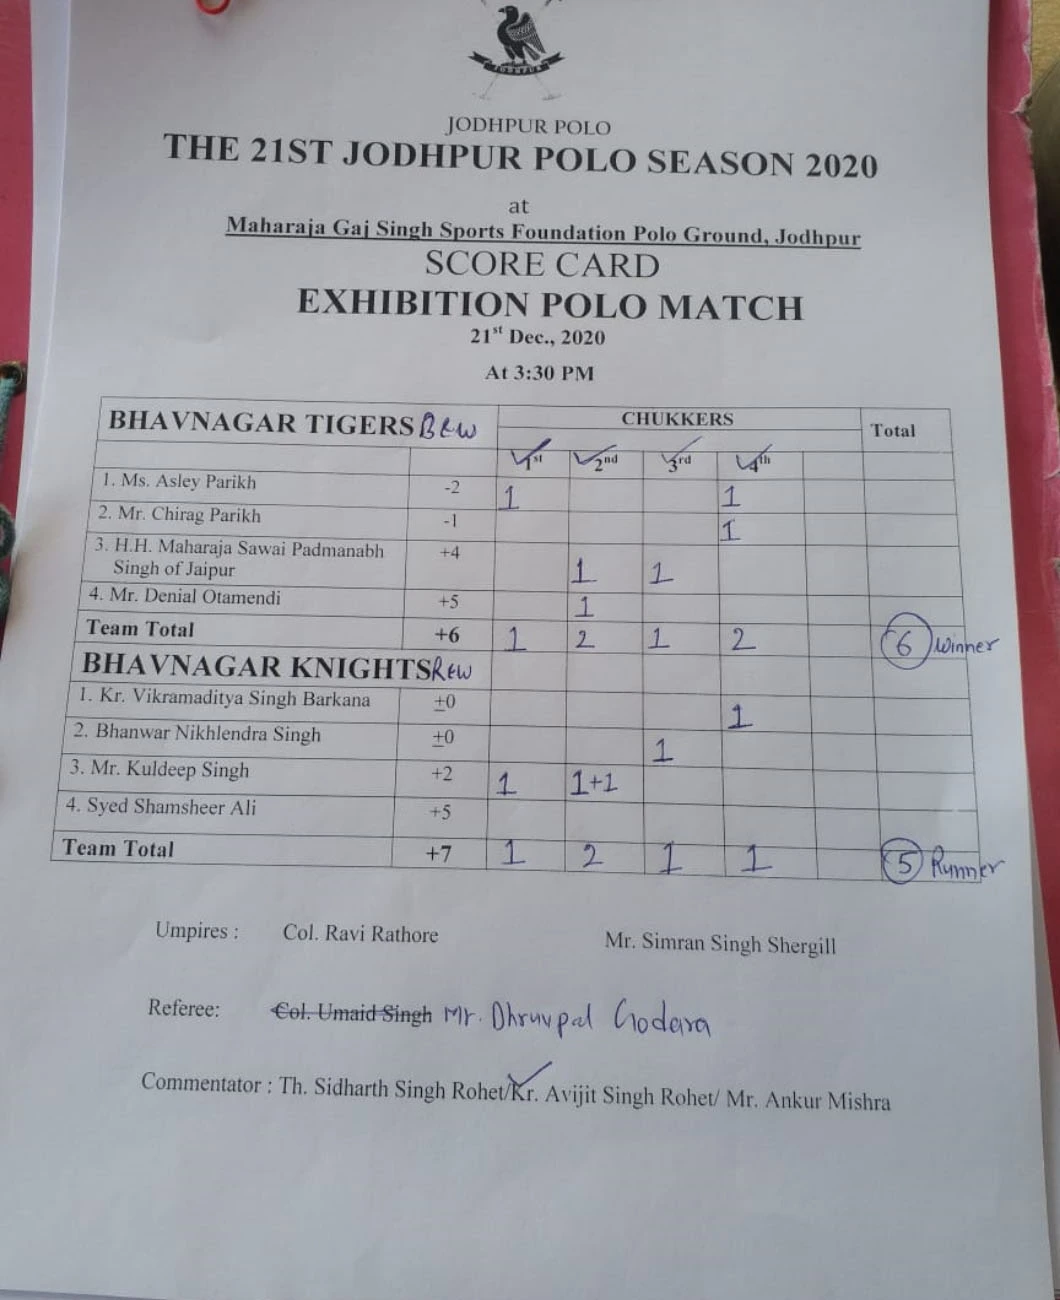 JODHPUR
JODHPUR POLO
THE 21ST JODHPUR POLO SEASON 2020
at
Maharaja Gaj Singh Sports Foundation Polo Ground, Jodhpur
SCORE CARD
EXHIBITION POLO MATCH
21st Dec., 2020
At 3:30 PM
BHAVNAGAR TIGERS B&W CHUKKERS Total
1st 2nd 3rd 4th
1. Ms. Asley Parikh -2 1 1
2. Mr. Chirag Parikh -1 1
3. H.H. Maharaja Sawai Padmanabh +4
Singh of Jaipur 1 1
4. Mr. Denial Otamendi +5 1
Team Total +6 1 2 1 2 6 Winner
BHAVNAGAR KNIGHTS R&W
1. Kr. Vikramaditya Singh Barkana ±0 1
2. Bhanwar Nikhlendra Singh ±0 1
3. Mr. Kuldeep Singh +2 1 1+1
4. Syed Shamsheer Ali +5
Team Total +7 1 2 1 1 5 Runner
Umpires : Col. Ravi Rathore Mr. Simran Singh Shergill
Referee: Col. Umaid Singh Mr. Dhruvpal Godara
Commentator : Th. Sidharth Singh Rohet/Kr. Avijit Singh Rohet/ Mr. Ankur Mishra